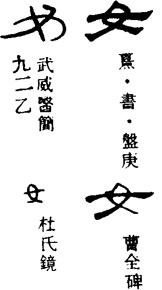 女
熹·書·盤庚
女
武威醫簡
九二乙
女
曹全碑
女
杜氏鏡